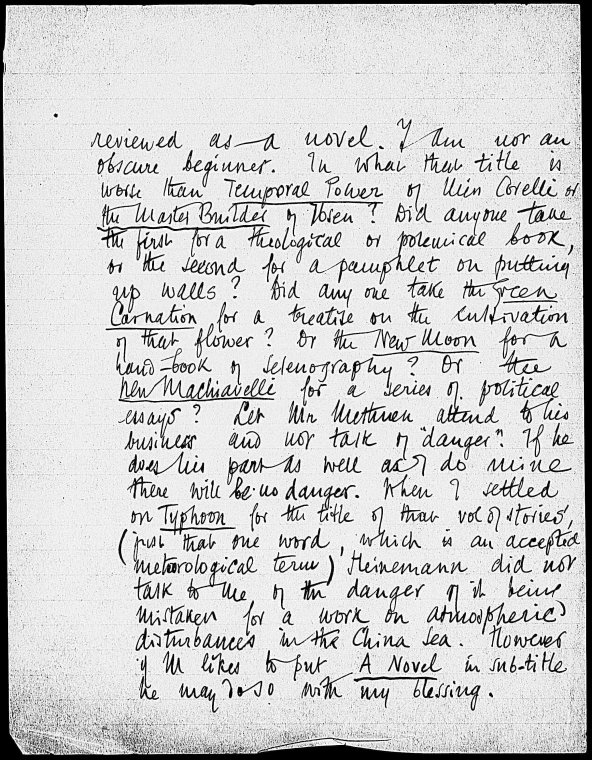 reviewed as a novel. I am not an
obscure beginner. In what that title is
worse than Temporal Power of Miss Corelli or
the Master Builder of Ibsen? Did anyone take
the first for a theological or polemical book,
or the second for a pamphlet on putting
up walls? Did any one take the Green
Carnation for a treatise on the cultivation
of that flower? Or the New Moon for a
hand-book of selenography? Or the
New Machiavelli for a series of political
essays? Let Mr Methuen attend to his
business and not talk of "danger". If he
does his part as well as I do mine
there will be no danger. When I settled
on Typhoon for the title of that vol of stories,
(just that one word, which is an accepted
meteorological term) Heinemann did not
talk to me of the danger of it being
mistaken for a work on atmospheric
disturbances in the China Sea. However
if M likes to put A Novel in sub-title
he may do so with my blessing.